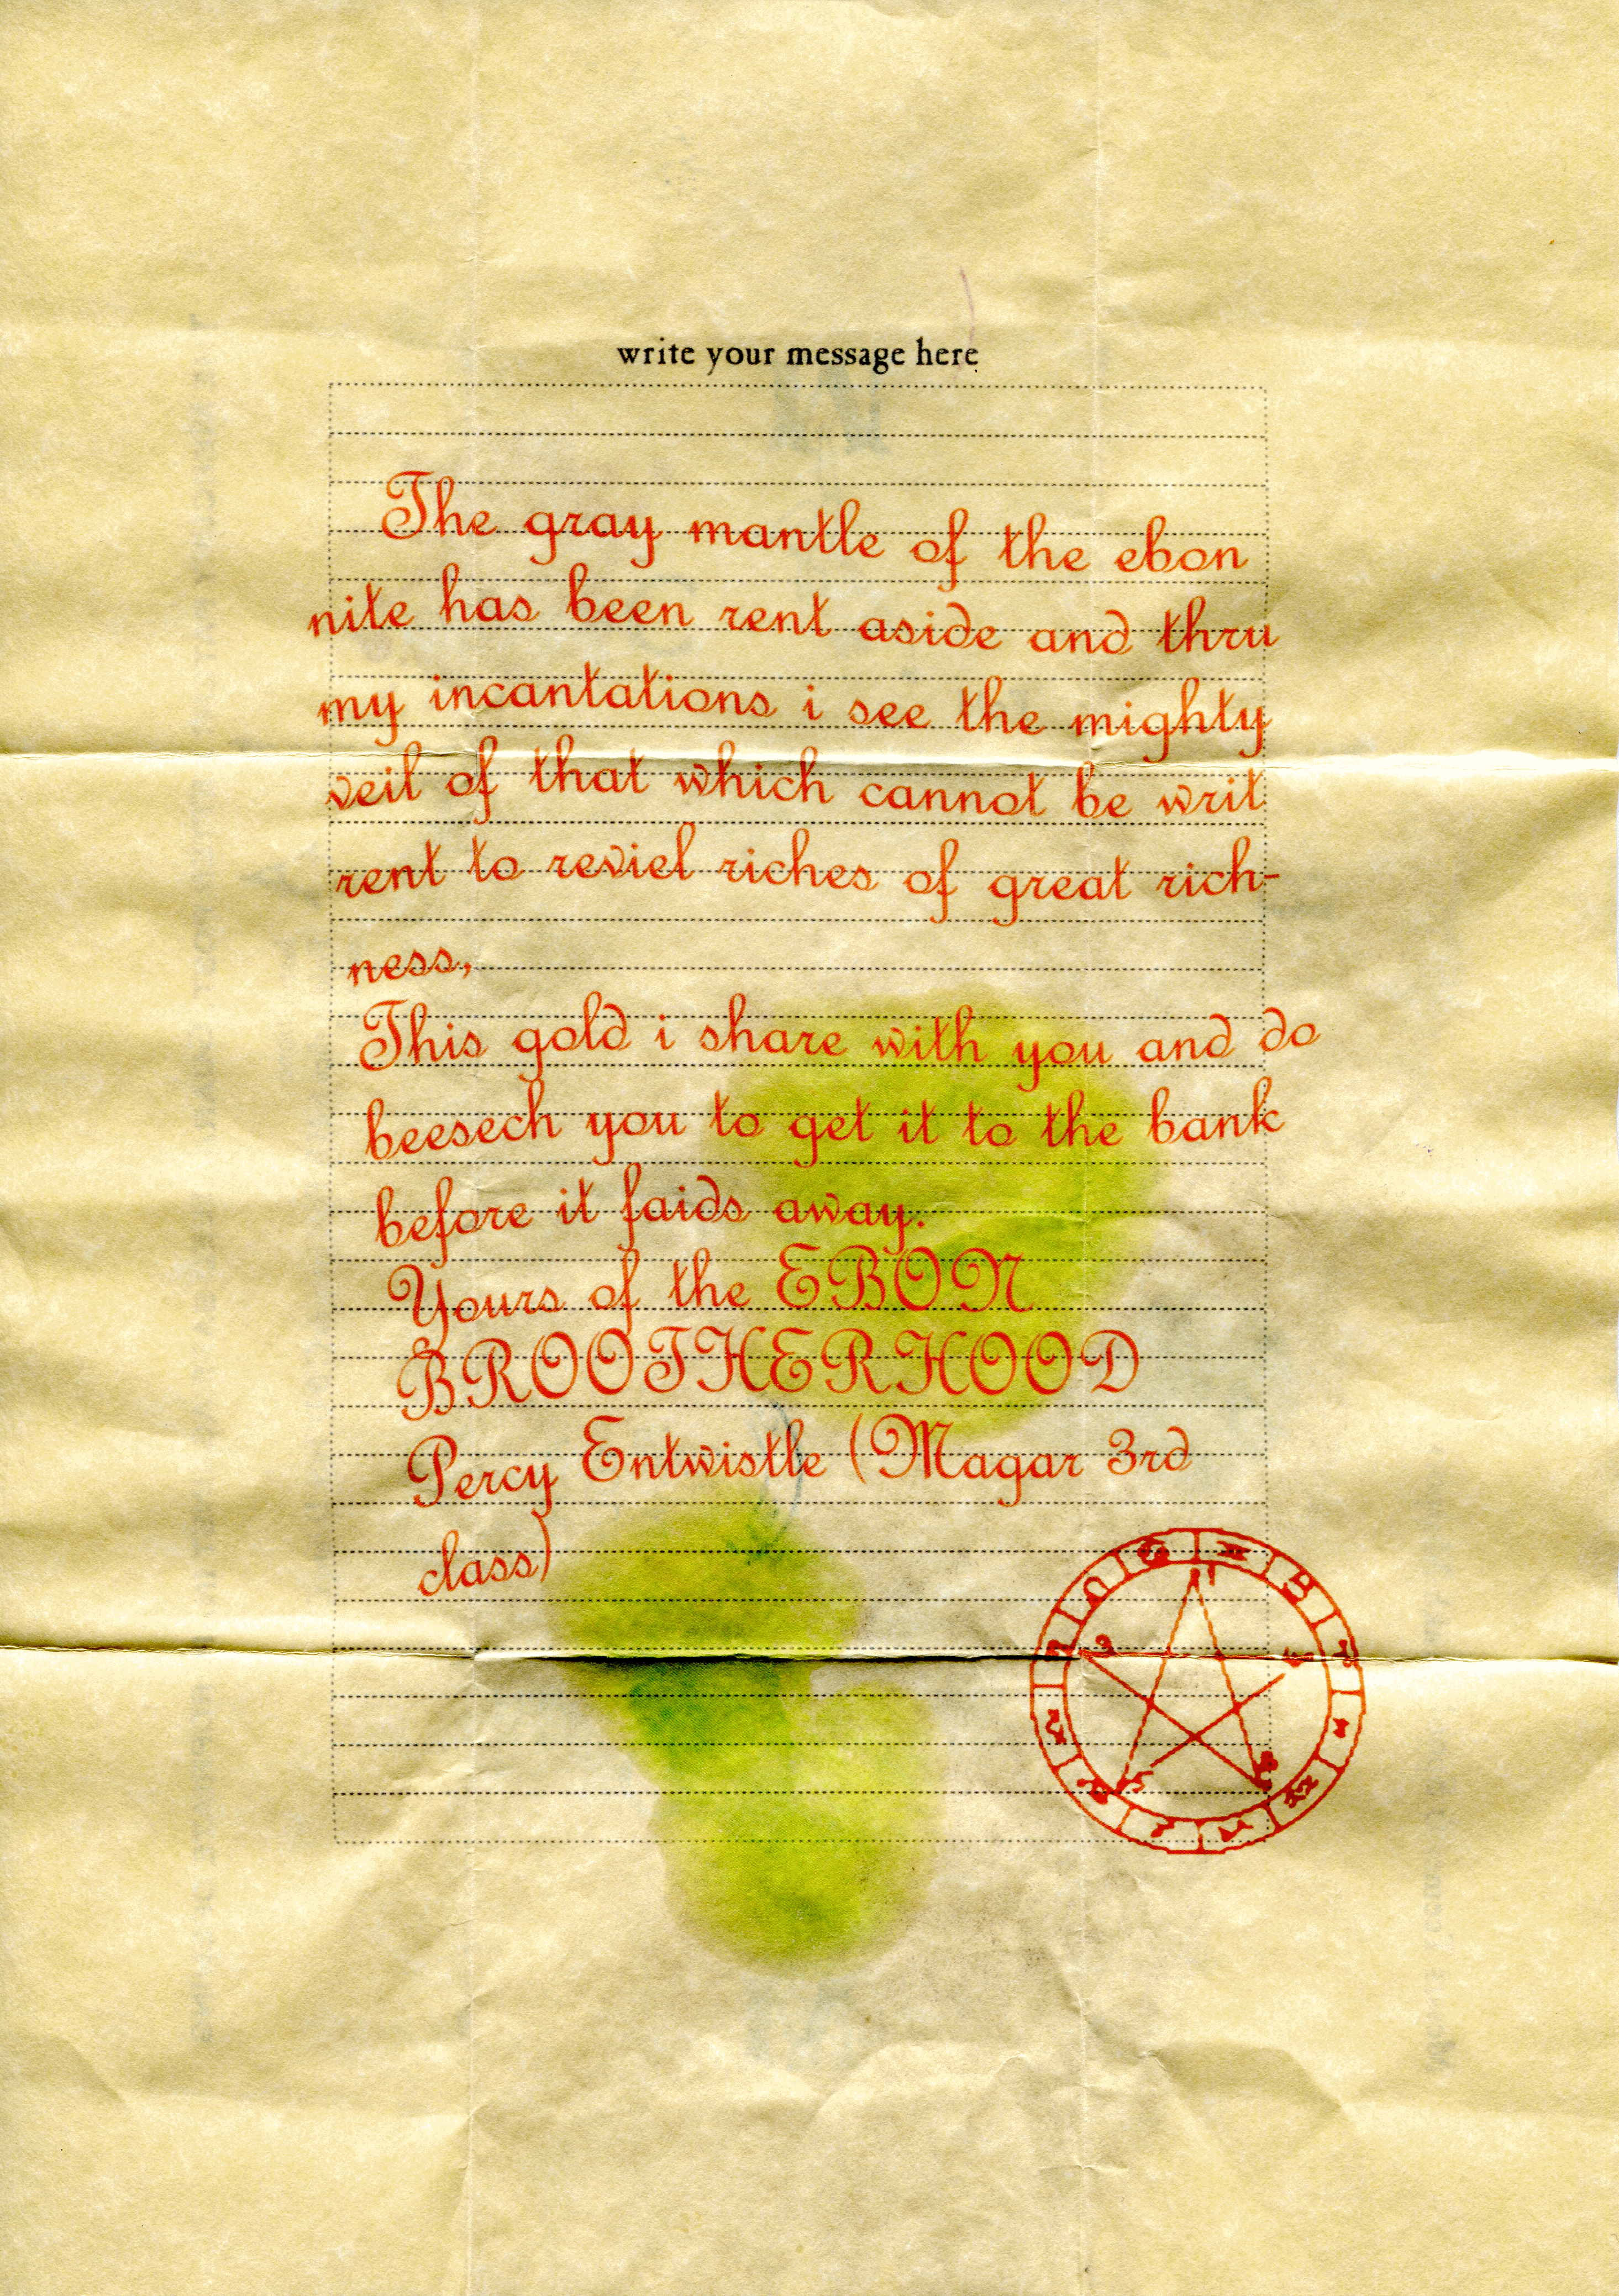 write your message here
The gray mantle of the ebon
nite has been rent aside and thru
my incantations i see the mighty
veil of that which cannot be writ
rent to reviel riches of great rich-
ness,
This gold i share with you and do
beesech you to get it to the bank
before it faids away.
Yours of the EBON
BROOTHERHOOD
Percy Entwistle (Magar 3rd
class)